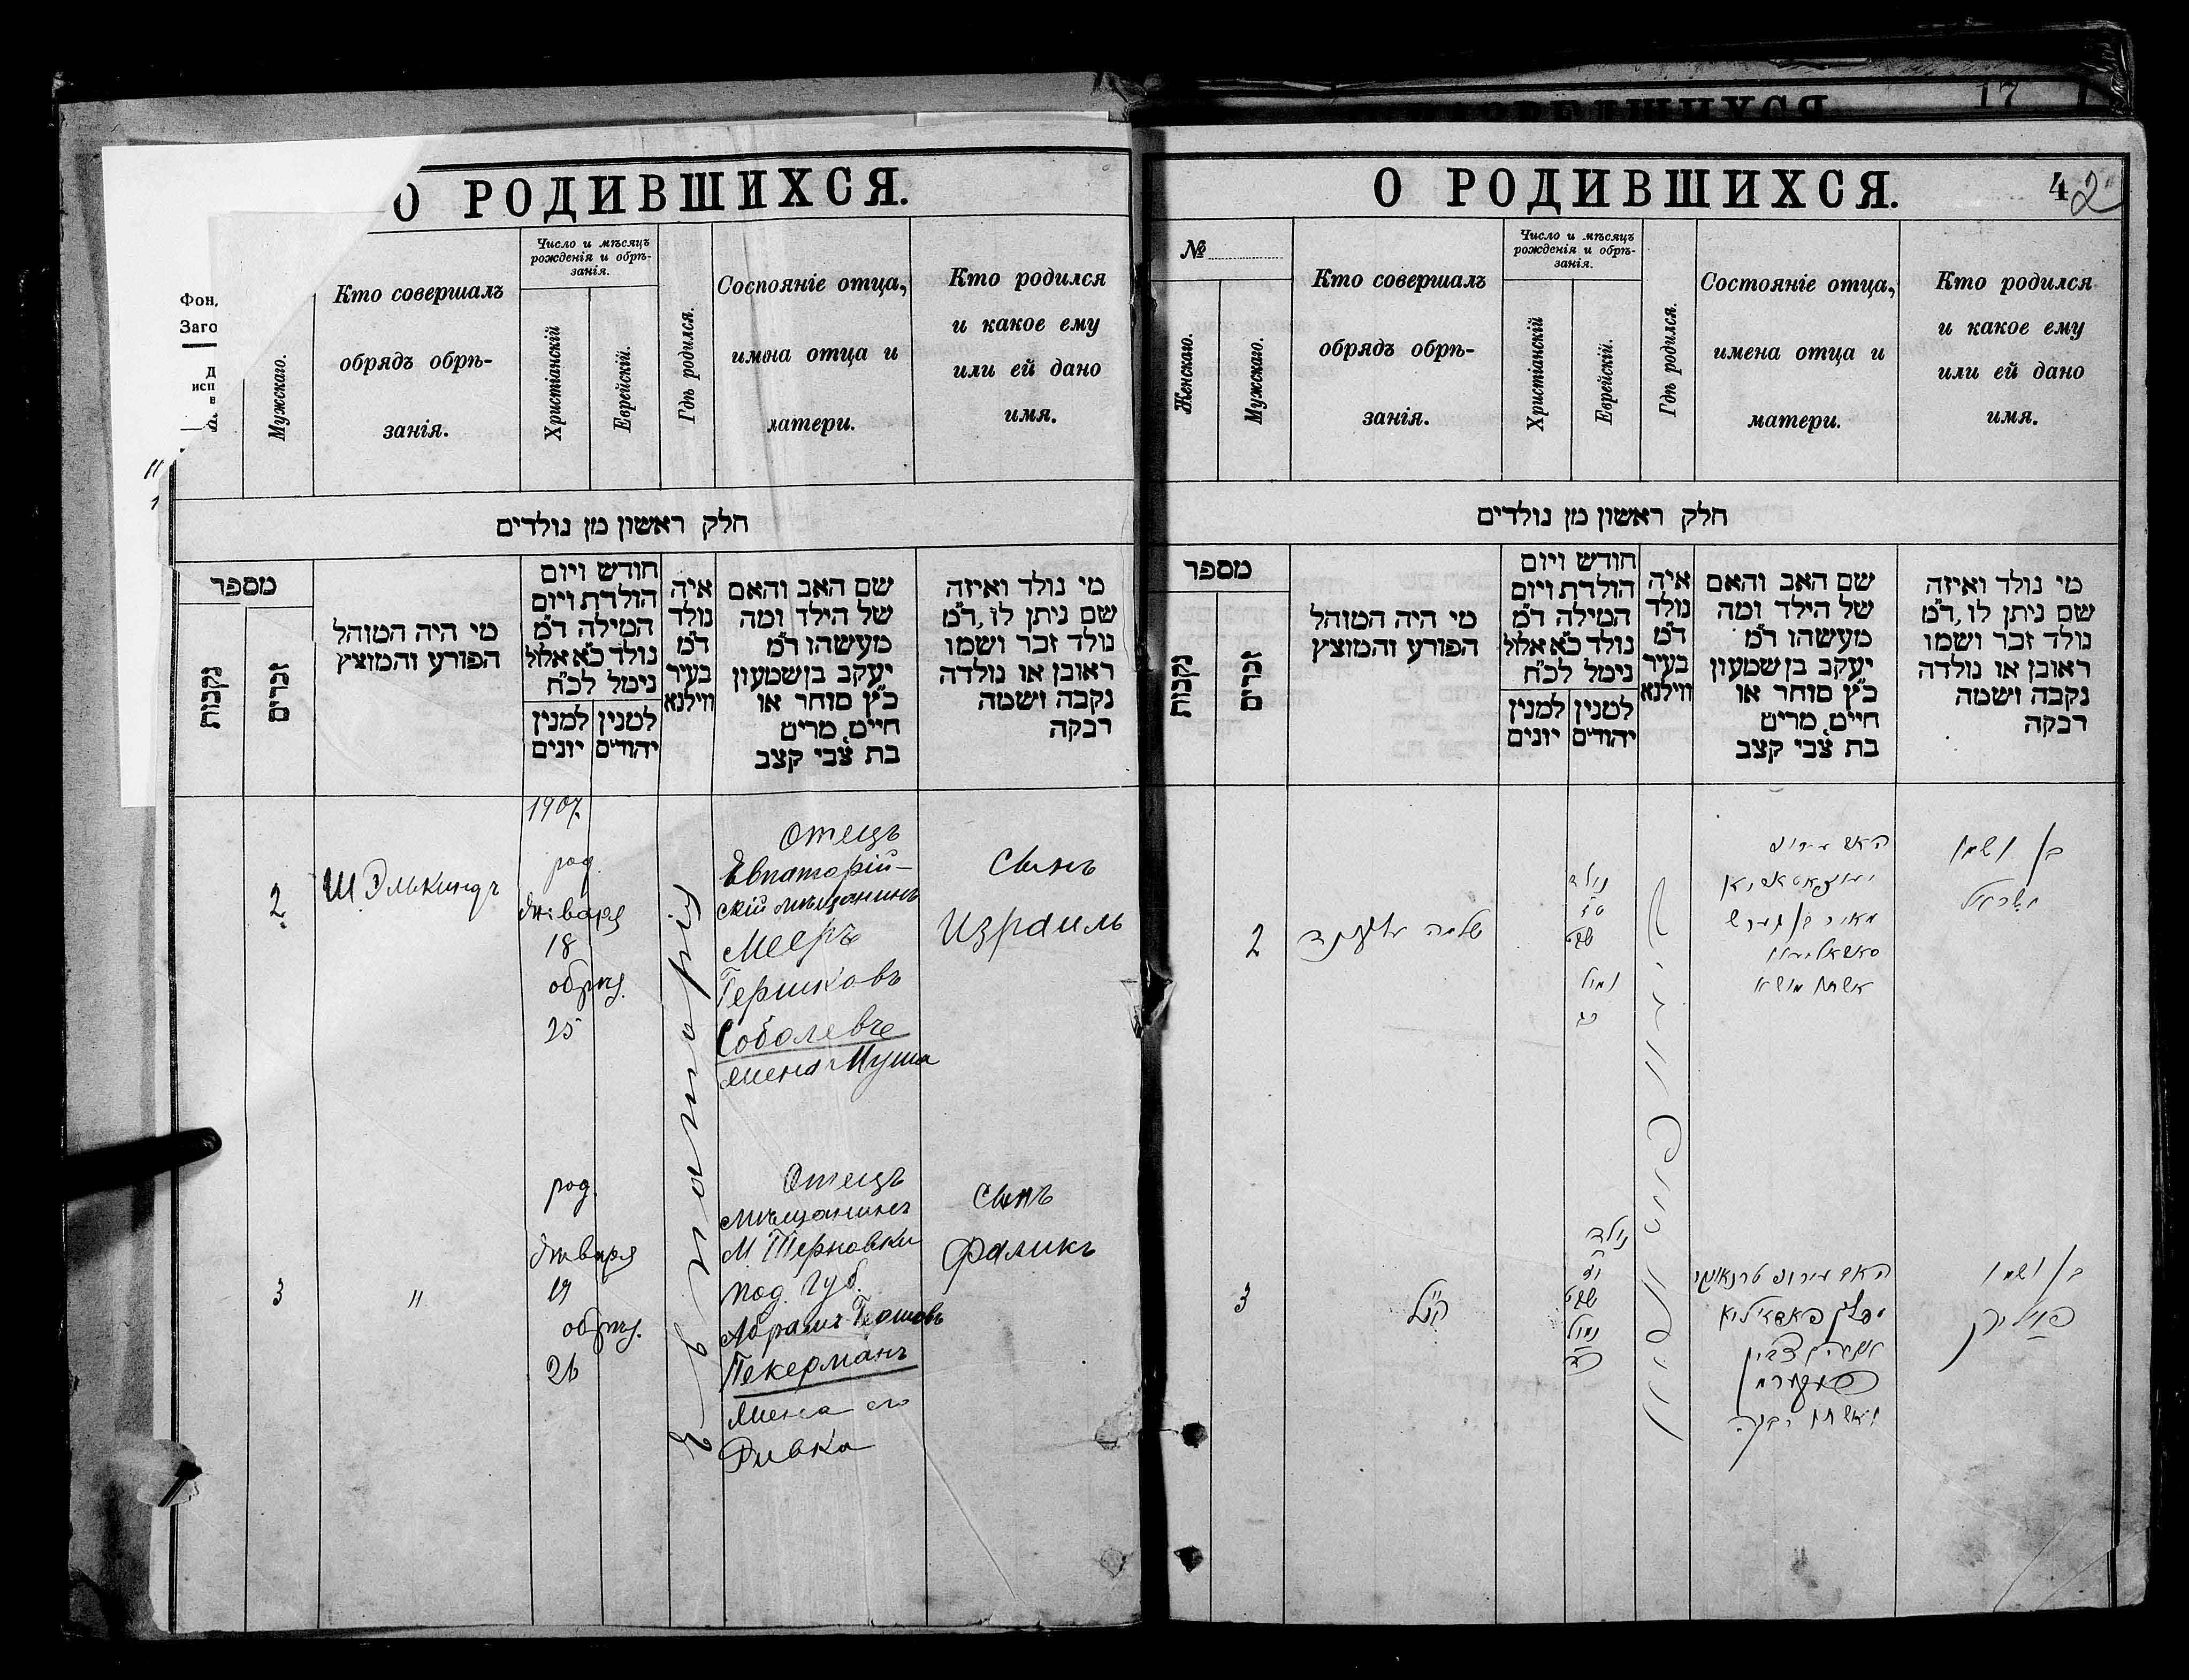 О РОДИВШИХСЯ.
Фон,
Заго
Мужскаго.
Кто совершалъ
обрядъ обрѣ-
занія.
Число и мѣсяцъ
рожденія и обрѣ-
занія.
Христіанскій
Еврейскій.
Гдѣ родился.
Состояніе отца,
имена отца и
матери.
Кто родился
и какое ему
или ей дано
имя.
חלק ראשון מן נולדים
מספר
נקבות
זכרים
מי היה המוהל
הפורע והמוצץ
חודש ויום
הולדת ויום
המילה ד״מ
נולד כ״א אלול
נימל לכ״ח
למנין יהודים
למנין יונים
איה
נולד
ד״מ
בעיר
ווילנא
שם האב והאם
של הילד ומה
מעשהו ד״מ
יעקב בן שמעון
כ״ץ סוחר או
חיים, מרים
בת צבי קצב
מי נולד ואיזה
שם ניתן לו, ד״מ
נולד זכר ושמו
ראובן או נולדה
נקבה ושמה
רבקה
2
Ш Элькиндъ
1907.
род.
Января
18
обрѣз.
25
Евпаторія
Отецъ
Евпаторій-
скій мѣщанинъ
Мееръ
Гершковъ
Соболевъ
жена Муша
Сынъ
Израиль
3
"
род.
Января
19
обрѣз.
26
Отецъ
мѣщанинъ
М. Терновки
Под. Губ.
Абрамъ Гершовъ
Пекерманъ
жена его
Ривка
Сынъ
Фаликъ
17
О РОДИВШИХСЯ.
42
№
Женскаго.
Мужскаго.
Кто совершалъ
обрядъ обрѣ-
занія.
Число и мѣсяцъ
рожденія и обрѣ-
занія.
Христіанскій
Еврейскій.
Гдѣ родился.
Состояніе отца,
имена отца и
матери.
Кто родился
и какое ему
или ей дано
имя.
חלק ראשון מן נולדים
מספר
נקבות
זכרים
מי היה המוהל
הפורע והמוצץ
חודש ויום
הולדת ויום
המילה ד״מ
נולד כ״א אלול
נימל לכ״ח
למנין יהודים
למנין יונים
איה
נולד
ד״מ
בעיר
ווילנא
שם האב והאם
של הילד ומה
מעשהו ד״מ
יעקב בן שמעון
כ״ץ סוחר או
חיים, מרים
בת צבי קצב
מי נולד ואיזה
שם ניתן לו, ד״מ
נולד זכר ושמו
ראובן או נולדה
נקבה ושמה
רבקה
2
נולד
שבט
נמול
מאיר בן הערש
בן ושמו
ישראל
3
הנ״ל
נולד
שבט
נמול
ואשתו רבקה
בן ושמו
פאליק